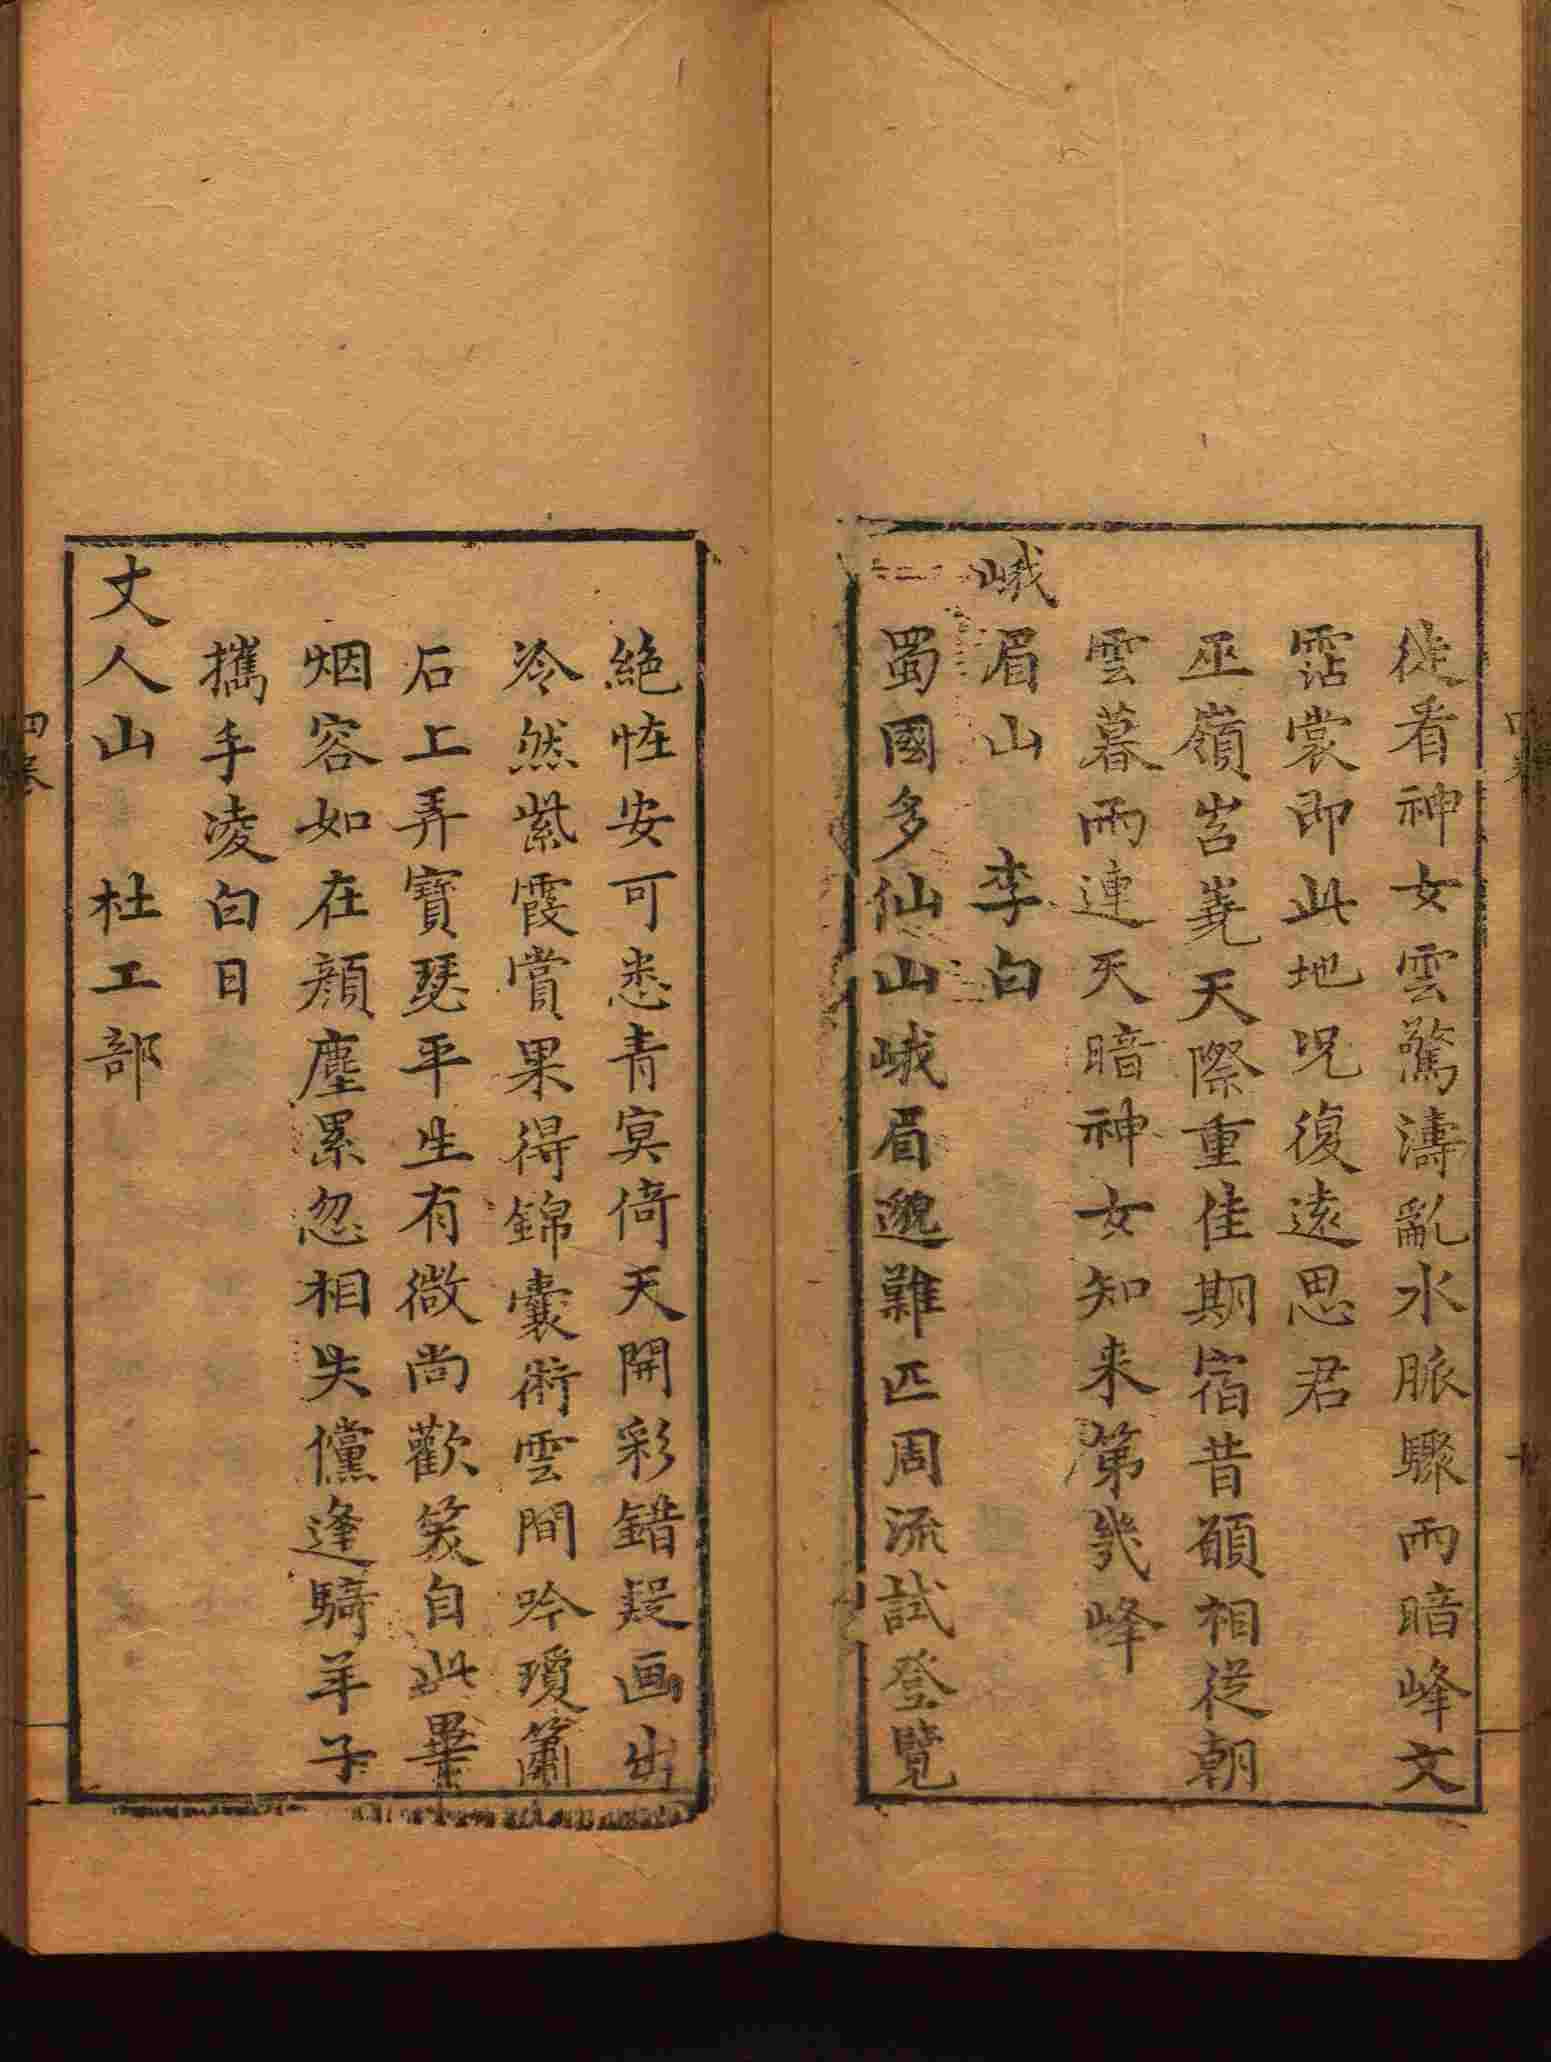 徒看神女雲驚濤亂水脈驟雨暗峰文
霑裳即此地況復遠思君
巫嶺岧嶤天際重佳期宿昔願相從朝
雲暮雨連天暗神女知来第幾峰
峨眉山　李白
蜀國多仙山峨眉邈難匹周流試登覽
絶恠安可悉青冥倚天開彩錯疑画出
泠然紫霞賞果得錦囊術雲間吟瓊簫
石上弄寶瑟平生有微尚歡笑自此畢
烟容如在顔塵累忽相失儻逢騎羊子
攜手凌白日
丈人山　杜工部
四卷
四卷